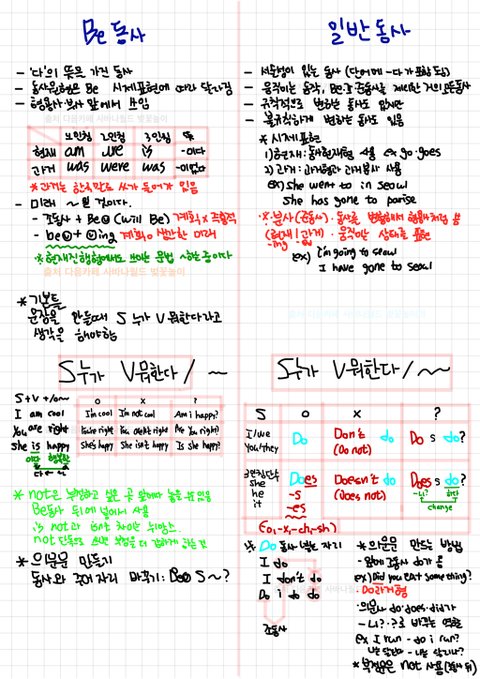 Be 동사
- '다'의 뜻을 가진 동사
- 동사원형은 Be 시제표현에 따라 달라짐
- 형용사·부사 앞에서 쓰임
출처 다음카페 사바나월드 벚꽃놀이
1인칭 2인칭 3인칭 뜻
현재 am are is -이다
과거 was were was -이었다
*과거는 한국말로 쓰가 들어가 있음
- 미래 ~ 일 것이다.
- 조동사 + Be (will Be) 계획x 추측적
- be + ing 계획 일반한 미래
*현재진행형에서도 쓰이는 문법 ~하는 중이다
출처 다음카페 사바나월드 벚꽃놀이
*기본틀
문장을 만들때 S 누가 V 뭐한다라고
생각을 해야함
S누가 V뭐한다 / ~
S + V + /a~ o x ?
I am cool I'm cool I'm not cool Am i happy?
You are right You're right You aren't right Are you right?
She is happy She's happy She isn't happy Is she happy?
이다 행복한
*not은 부정하고 싶은 곳 앞에다 놓을 수 있음
Be동사 뒤에 넣어서 사용
is not과 isn't 차이는 뉘앙스
*의문문 만들기
동사와 주어 자리 바꾸기: Be S ~?
일반동사
- 서술성이 있는 동사 (단어에 -다가 포함 됨)
- 움직이는 동작, Be랑 조동사를 제외한 거의 모든동사
- 규칙적으로 변하는 동사도 있지만
- 불규칙하게 변하는 동사도 있음
*시제표현
1) 현재: 동사현재형 사용 ex go·goes
2) 과거: 과거형과 과거분사 사용
ex) she went to in seoul
she has gone to parise
*분사(준동사): 동사를 변형해서 형용사처럼 씀
(현재 / 과거) - 움직임 상태로 표현
-ing -ed
ex) i'm going to seoul
I have gone to seoul
S누가 V뭐한다 / ~~
S o x ?
I/we you/they Do Don't do (Do not) Do s do?
3인칭단수 she he it Does -s -es Doesn't do (does not) Does s do?
-니? 하다
change
(o,-x,-ch,-sh)
Do 동사 넣는 자리
I do
I don't do
Do i do do
조동사
*의문문 만드는 방법
- 앞에 조동사 do가 옴
ex) Did you eat something?
Do과거형
·의문사 do·does·did가
-니?·?로 바꾸는 역할
ex I run - do i run?
나는 달린다 - 나는 달리니?
*부정문은 not 사용(동사 뒤)